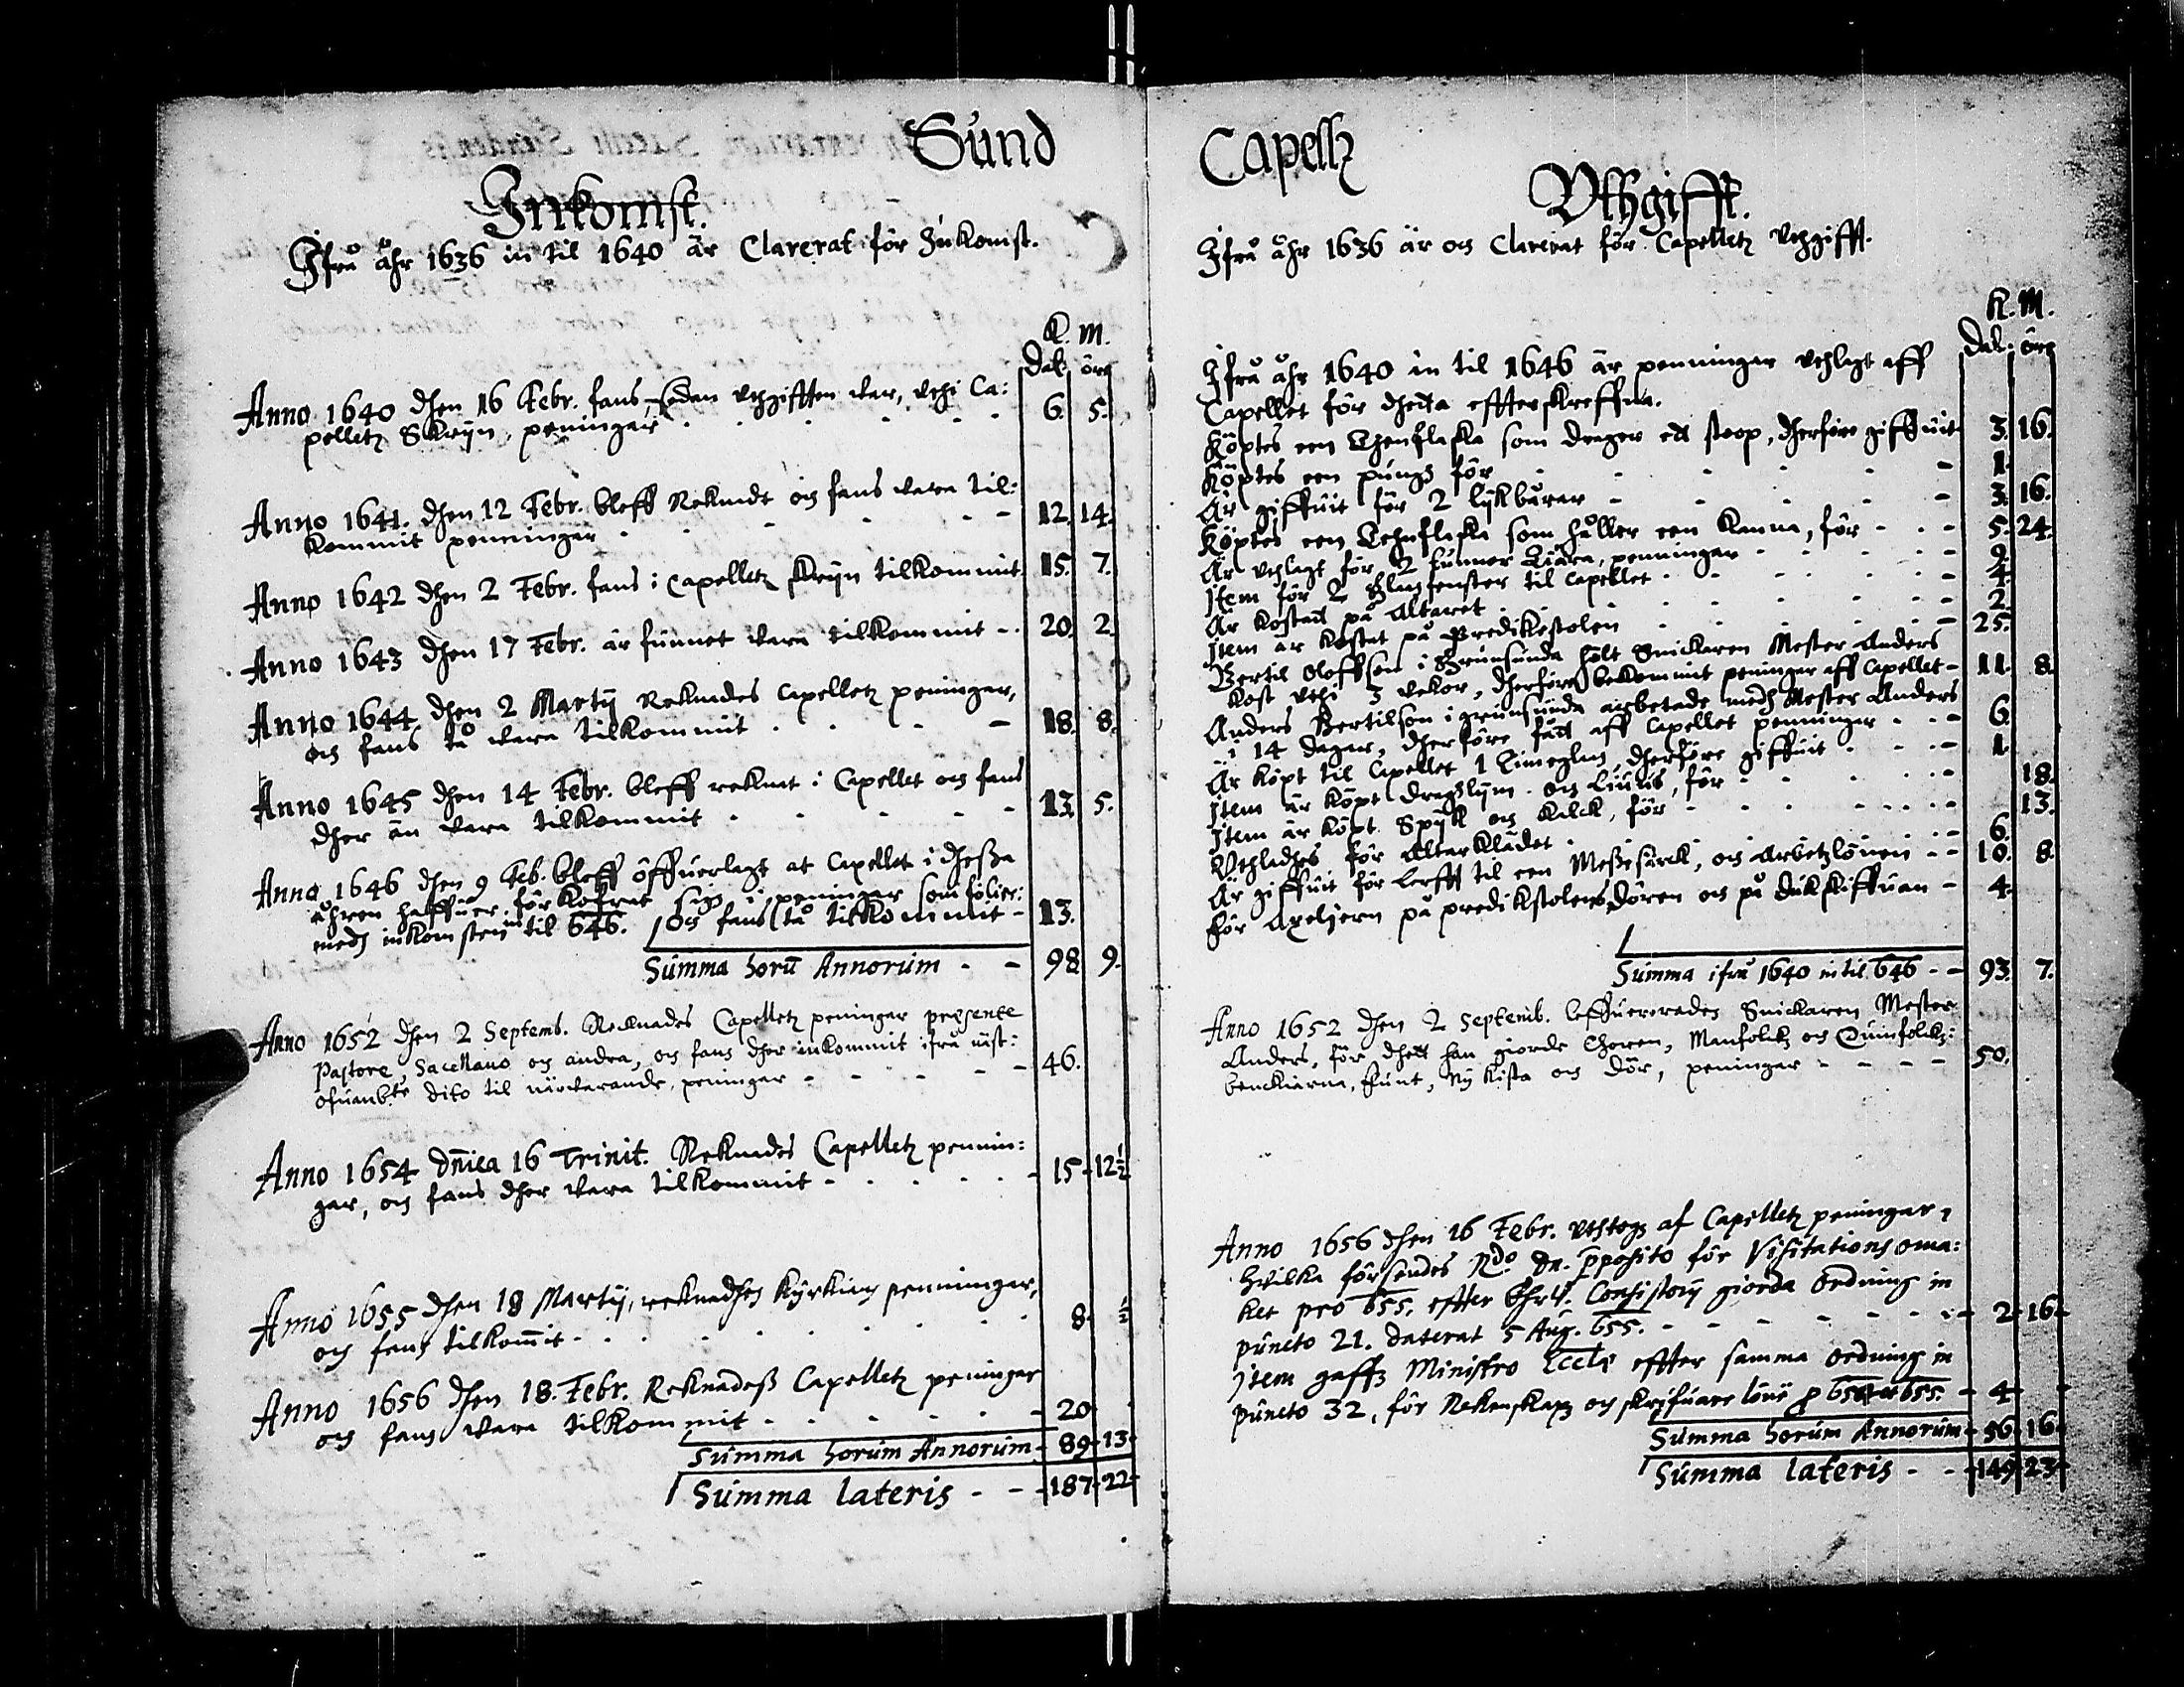 Sund
Inkomst.
Ifrå åhr 1636 in til 1640 är Clarerat för Inkomst.
K. M.
Dal. öre
Anno 1640 dhen 16 Febr. fans, sedan vthgifften var, vthi Ca:
pelletz Skrijn, peningar 6. 5.
Anno 1641. dhen 12 Febr. bleff Reknadt och fans vara til:
kommit penningar 12. 14.
Anno 1642 dhen 2 Febr. fans i Capelletz skrijn tilkommit 15. 7.
Anno 1643 dhen 17 Febr. är funnet vara tilkommit - 20. 2.
Anno 1644 dhen 2 Martij Reknades Capelletz peningar,
och fans tå vara tilkommit 18. 8.
Anno 1645 dhen 14 Febr. bleff reknat i Capellet och fans
dher än vara tilkommit 13. 5.
Anno 1646 dhen 9 Feb. bleff öffuerlagt at Capellet i dhessa
åhren haffuer förkofrat sig i peningar som fölier:
medh inkomsten in til 646. Och fans tå tilkommit - 13.
Summa horũ Annorum - - 98 9.
Anno 1652 dhen 2 Septemb. Reknades Capelletz peningar præsente
Pastore Sacellano och andra, och fans dher inkommit ifrå sist:
ofuanb:te dito til närvarande, peningar - - 46.
Anno 1654 Dñica 16 Trinit. Reknades Capelletz pennin:
gar, och fans dher vara tilkommit - 15 - 12½
Anno 1655 dhen 18 Martij, reknadhes Kyrkines penningar,
och fans tilkom̃it - 8. ½
Anno 1656 dhen 18. Febr. Reknadess Capelletz peningar
och fans vara tilkommit - 20
Summa horum Annorum - 89 - 13 -
Summa lateris - - 187 - 22 -
Capellz
Vthgifft.
Ifrå åhr 1636 är och Clarerat för Capelletz Vthgifft.
K. M.
Dal. öre
Ifrå åhr 1640 in til 1646 är penningar vthlagt aff
Capellet för dhetta effterskreffna.
Köptes een Thenflaska som drager ett stoop, dherföre giffuit 3. 16.
Köptes een pungh för - 1.
Är giffuit för 2 lijkbårar - 3. 16.
Köptes een Tehnflaska som håller een Kanna, för - - 5. 24.
Är vthlagt för 2 tunnor Tiära, penningar - 9.
Item för 2 Glasfenster til Capellet - 4.
Är kostadt på Altaret - 2.
Item är kostat på Predikestolen - 25.
Bertil Oloffson i Grunsunda hölt Snickaren Mester Anders
kost vthi 3 vekor, dherföre bekommit peningar aff Capellet - 11. 8.
Anders Bertilson i Grunsunda arbetade medh Mester Anders
i 14 dagar, dherföre fått aff Capellet penningar - - 6.
Är köpt til Capellet 1 Timeglas, dherföre giffuit - 1.
Item är köpt dragslijm och Liuus, för - 18.
Item är köpt Spijk och Kalck, för - 13.
Vthladhes för Altarklädet - 6.
Är giffuit för lerfft til een Messesärck, och Arbetzlönen - 10. 8.
för Axeljern på predikstolens dören och på dukskiffuan - 4.
Summa ifrå 1640 in til 646 - - 93. 7.
Anno 1652 dhen 2 Septemb. leffuererades Snickaren Mester
Anders, för dhett han giorde Choren, Manfolckz och Quinfolckz:
benckiarna, funt, ny kista och dör, peningar - - 50.
Anno 1656 dhen 16 Febr. vthtogs af Capelletz peningar,
hvilka försendes Rdo Dn. Præposito för Visitations oma:
ket pro 655, effter Ehrl. Consistorij giorda Ordning in
puncto 21. daterat 5 Aug. 655. - 2 - 16 -
Item gaffs Ministro Eccle effter samma Ordning in
puncto 32, för Rekenskap och skrifuare löns p 654 et 655. - 4 -
Summa horum Annorum - 56 16.
Summa lateris - - 149 23 -